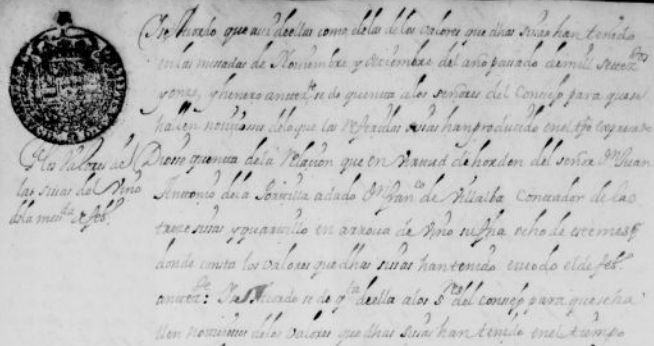 Y se Acordo que assi de ellas como de las de los valores que dhas sisas han tenido
en las mesadas de Noviembre y Diziembre del año pasado de mill setezos
y onze, y henero antezte se de quenta a los señores del Consejo para que se
hallen noticiosos de lo que las referidas sisas han produzido en el tpo expresado
Diose quenta de la Relazion que en virtud de horden del señor Dn Juan
Antonio de la Portilla a dado Dn Franco de Villalba Contador de las
treze sisas y quartillo en arroua de vino su fha ocho de este mes
donde consta los valores que dhas sisas han tenido en todo el de febo
antezte: Y se Acordo se de qta de ella a los Sres del Consejo para que se ha
llen noticiosos de los valores que dhas sisas han tenido en el tiempo
los valores de
las sisas del vino
de la mesda de febo